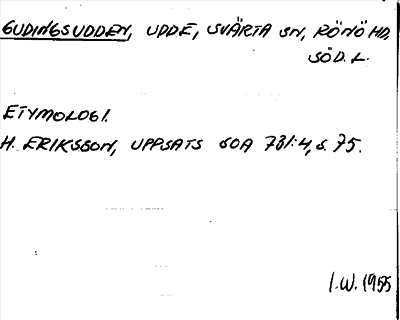 GUDINGSUDDEN, UDDE, SVÄRTA SN, RÖNÖ HD,
SÖD. L.
ETYMOLOGI.
H. ERIKSSON, UPPSATS SOA 731:4, S. 75.
I.W. 1955